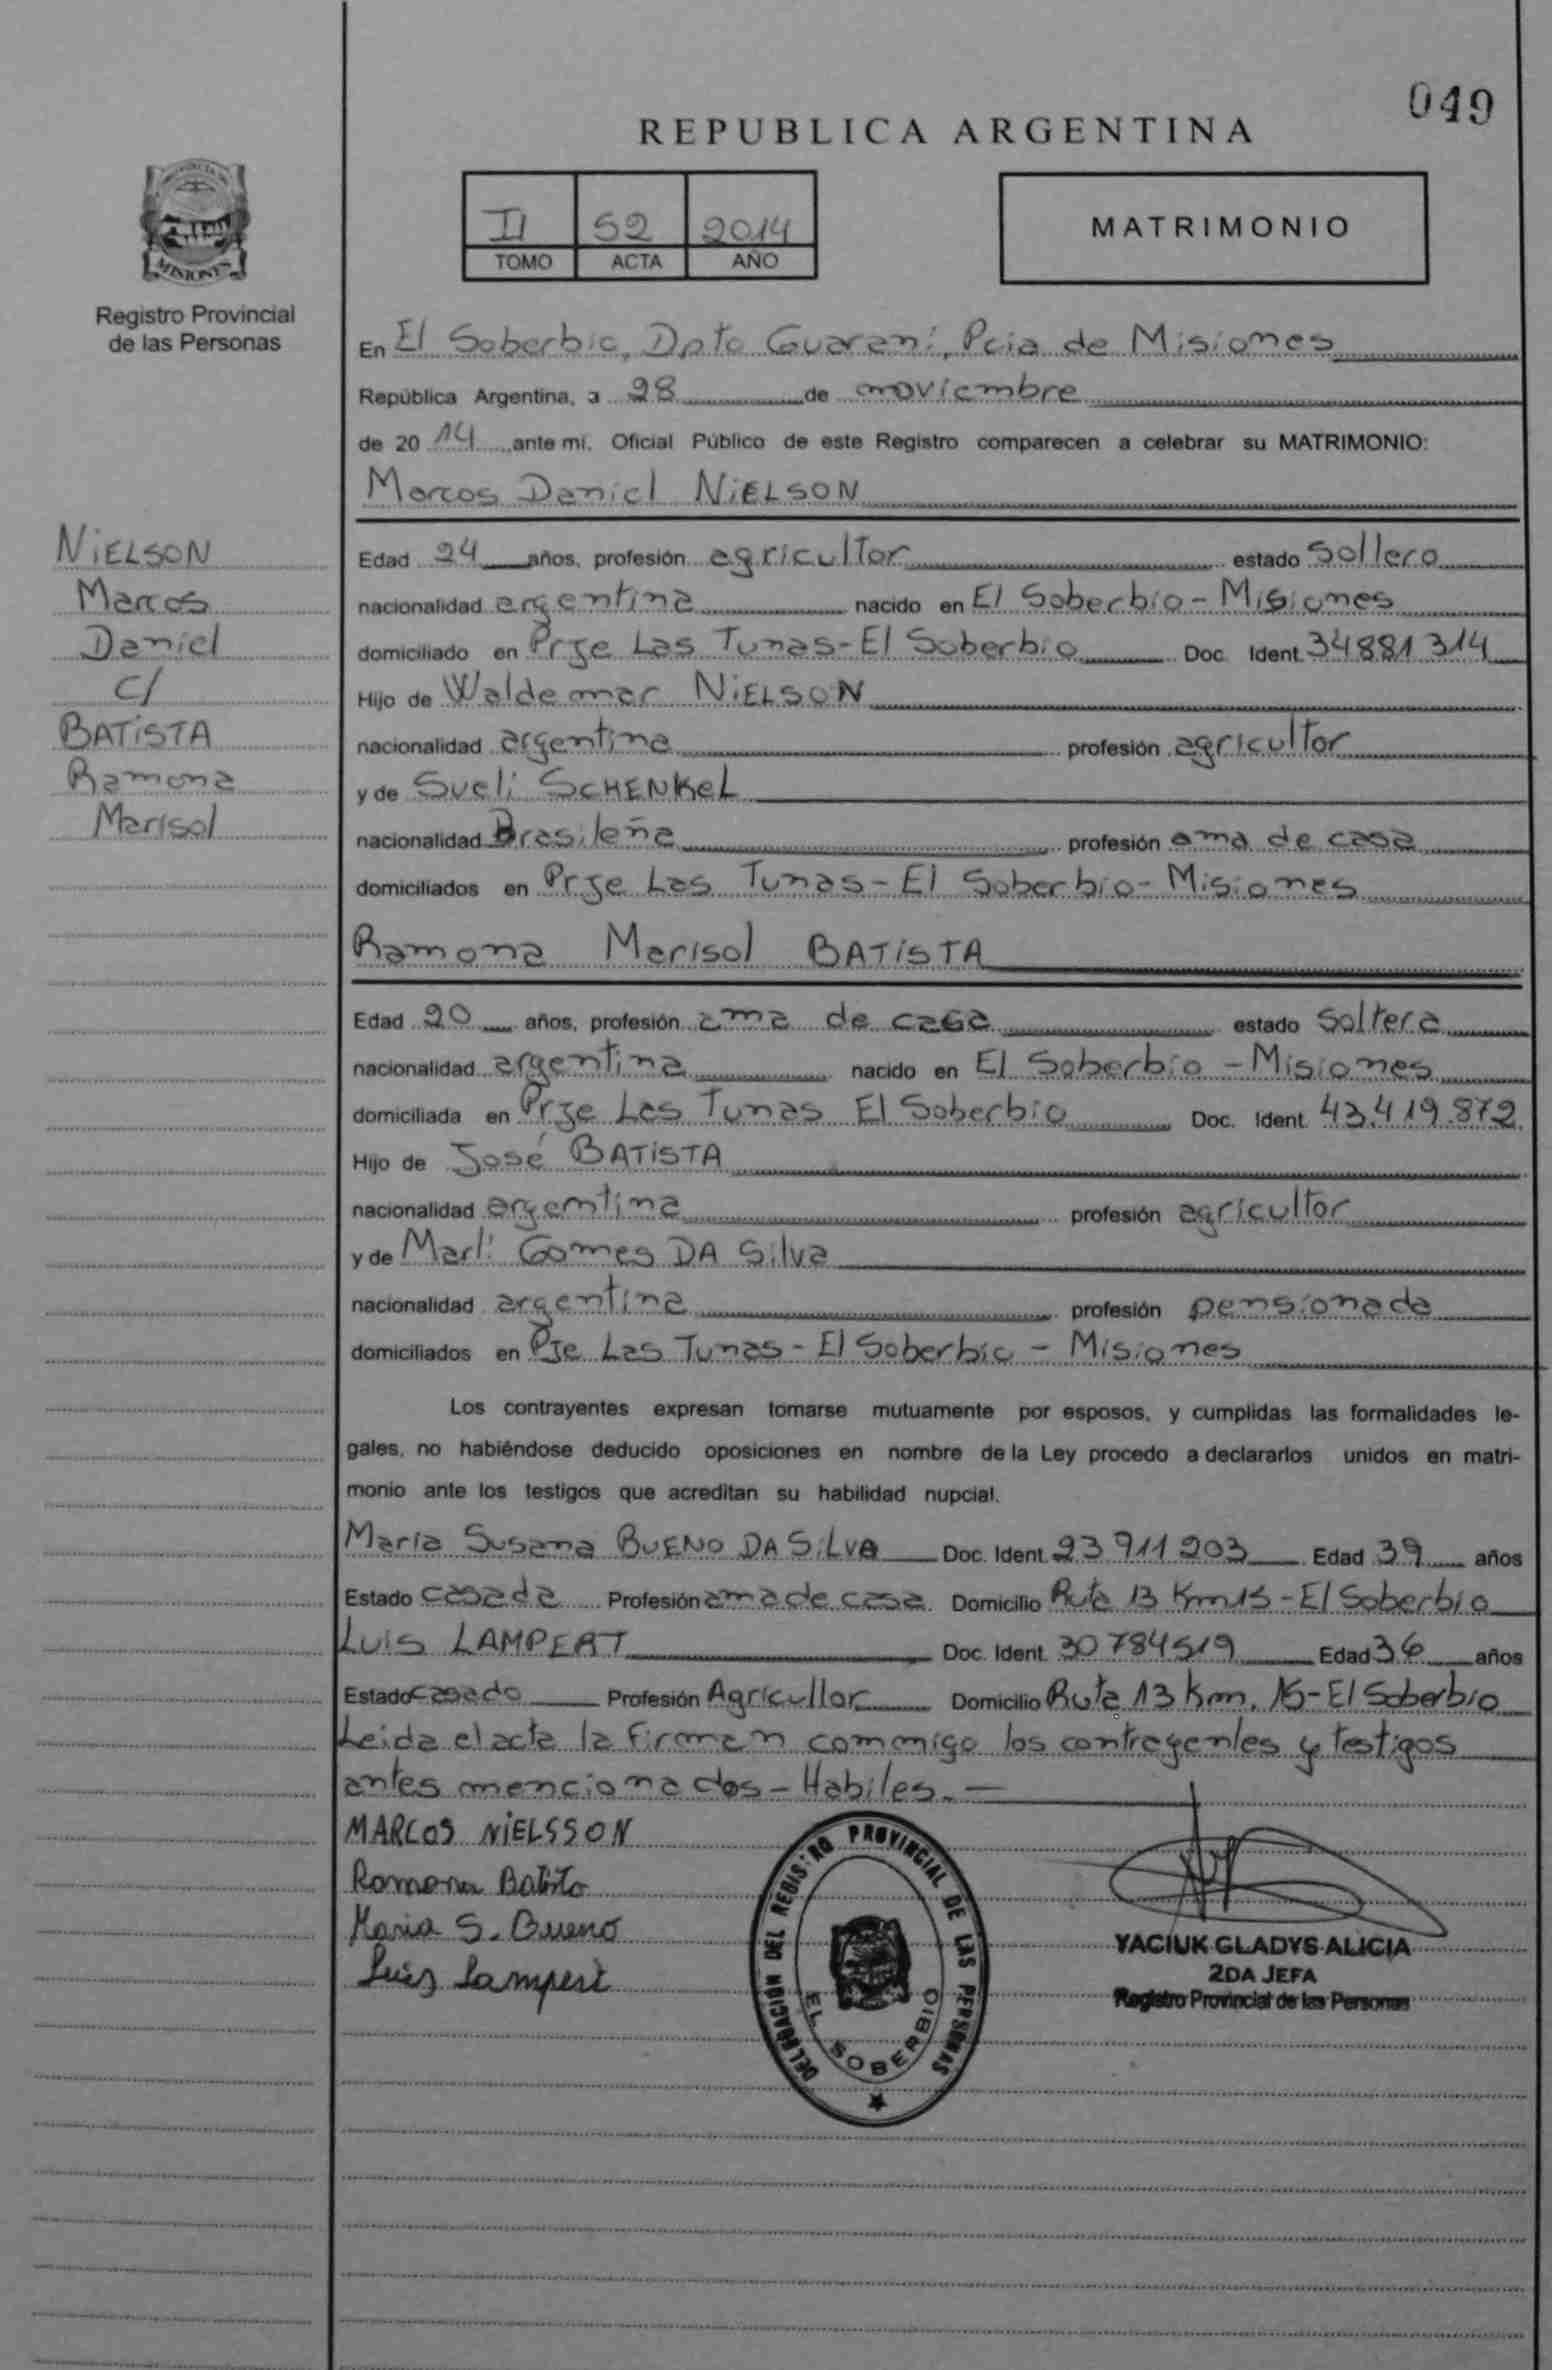 049
REPUBLICA ARGENTINA
II 52 2014
TOMO ACTA AÑO
MATRIMONIO
MISIONES
Registro Provincial
de las Personas
En El Soberbio, Dpto Guaraní, Pcia de Misiones
República Argentina, a 28 de noviembre
de 20 14 ante mi. Oficial Público de este Registro comparecen a celebrar su MATRIMONIO:
Marcos Daniel NiELSON
NiELSON
Marcos
Daniel
C/
BATiSTA
Ramona
Marisol
Edad 24 años, profesión agricultor estado Soltero
nacionalidad argentina nacido en El Soberbio - Misiones
domiciliado en Prje Las Tunas - El Soberbio Doc. Ident. 34881314
Hijo de Waldemar NiELSON
nacionalidad argentina profesión agricultor
y de Sueli SCHENKeL
nacionalidad Brasileña profesión ama de casa
domiciliados en Prje Las Tunas - El Soberbio - Misiones
Ramona Marisol BATiSTA
Edad 20 años, profesión ama de casa estado Soltera
nacionalidad argentina nacido en El Soberbio - Misiones
domiciliada en Prje Las Tunas El Soberbio Doc. Ident. 43.419.872
Hijo de José BATiSTA
nacionalidad argentina profesión agricultor
y de Marli Gomes DA Silva
nacionalidad argentina profesión pensionada
domiciliados en Pje Las Tunas - El Soberbio - Misiones
Los contrayentes expresan tomarse mutuamente por esposos, y cumplidas las formalidades le-
gales, no habiéndose deducido oposiciones en nombre de la Ley procedo a declararlos unidos en matri-
monio ante los testigos que acreditan su habilidad nupcial.
Maria Susana BUENO DA SiLVA Doc. Ident. 23 911 203 Edad 39 años
Estado casada Profesión ama de casa Domicilio Ruta 13 Km 15 - El Soberbio
LUIS LAMPERT Doc. Ident. 30 784 519 Edad 36 años
Estado casado Profesión Agricultor Domicilio Ruta 13 Km. 15 - El Soberbio
Leida el acta la firman conmigo los contrayentes y testigos
antes mencionados - Habiles. -
MARCOS NiELSSON
Ramona Batista
Maria S. Bueno
Luis Lampert
DELEGACION DEL REGISTRO PROVINCIAL DE LAS PERSONAS
EL SOBERBIO
YACIUK GLADYS ALICIA
2DA JEFA
Registro Provincial de las Personas